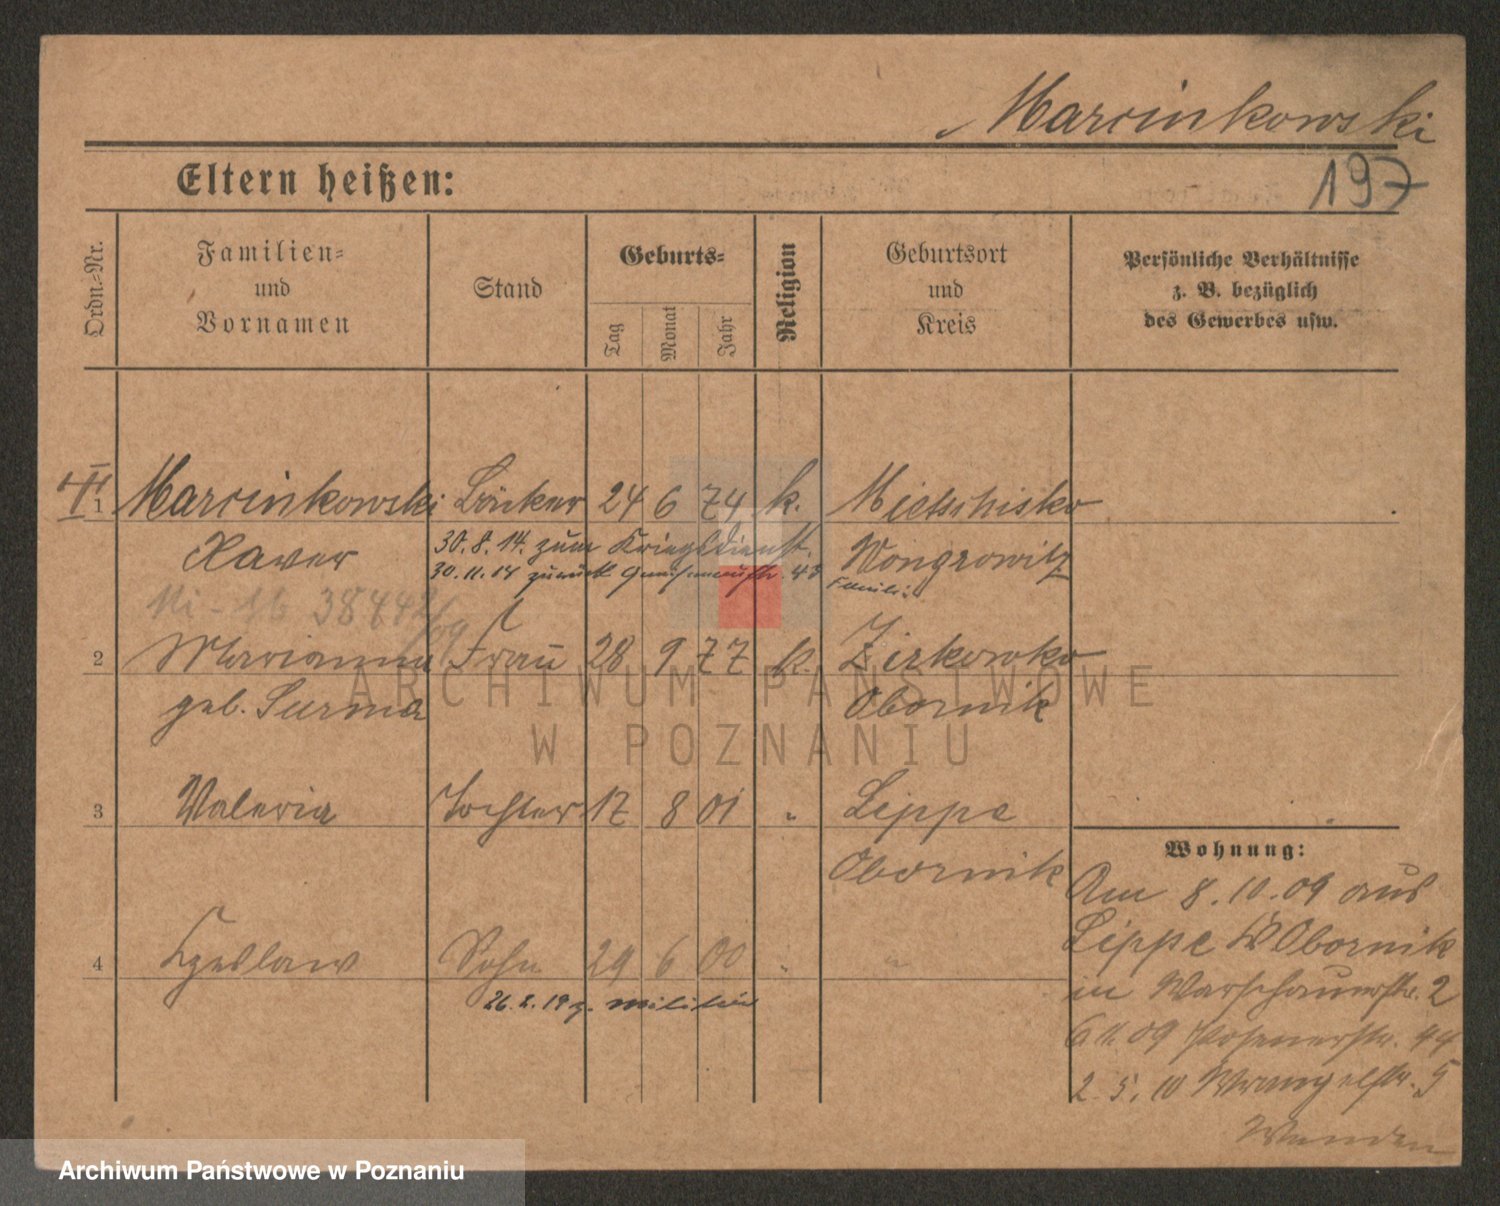 Marcinkowski
197
Eltern heißen:
Ordn.-Nr.
Familien=
und
Vornamen
Stand
Geburts=
Tag
Monat
Jahr
Religion
Geburtsort
und
Kreis
Persönliche Verhältnisse
z. B. bezüglich
des Gewerbes usw.
1 Marcinkowski Bäcker 24 6 74 k. Mietschisko
Xaver Wongrowitz
30. 8. 14. zum Kriegsdienst.
30. 11. 14 zurück Gneisenaustr. 43
2 Marianna Frau 28 9 77 k. Zirkowko
geb. Surma Obornik
3 Valeria Tochter 17 8 01 " Lippe
Obornik
4 Czeslaw Sohn 29 6 00 " "
26. 2. 19 z. Militär
Wohnung:
Am 8. 10. 09 aus
Lippe Obornik
in Warschauerstr. 2
6 11. 09 Posenerstr. 44
2. 5. 10 Wrangelstr. 5
Wenden
ARCHIWUM PAŃSTWOWE
W POZNANIU
Archiwum Państwowe w Poznaniu